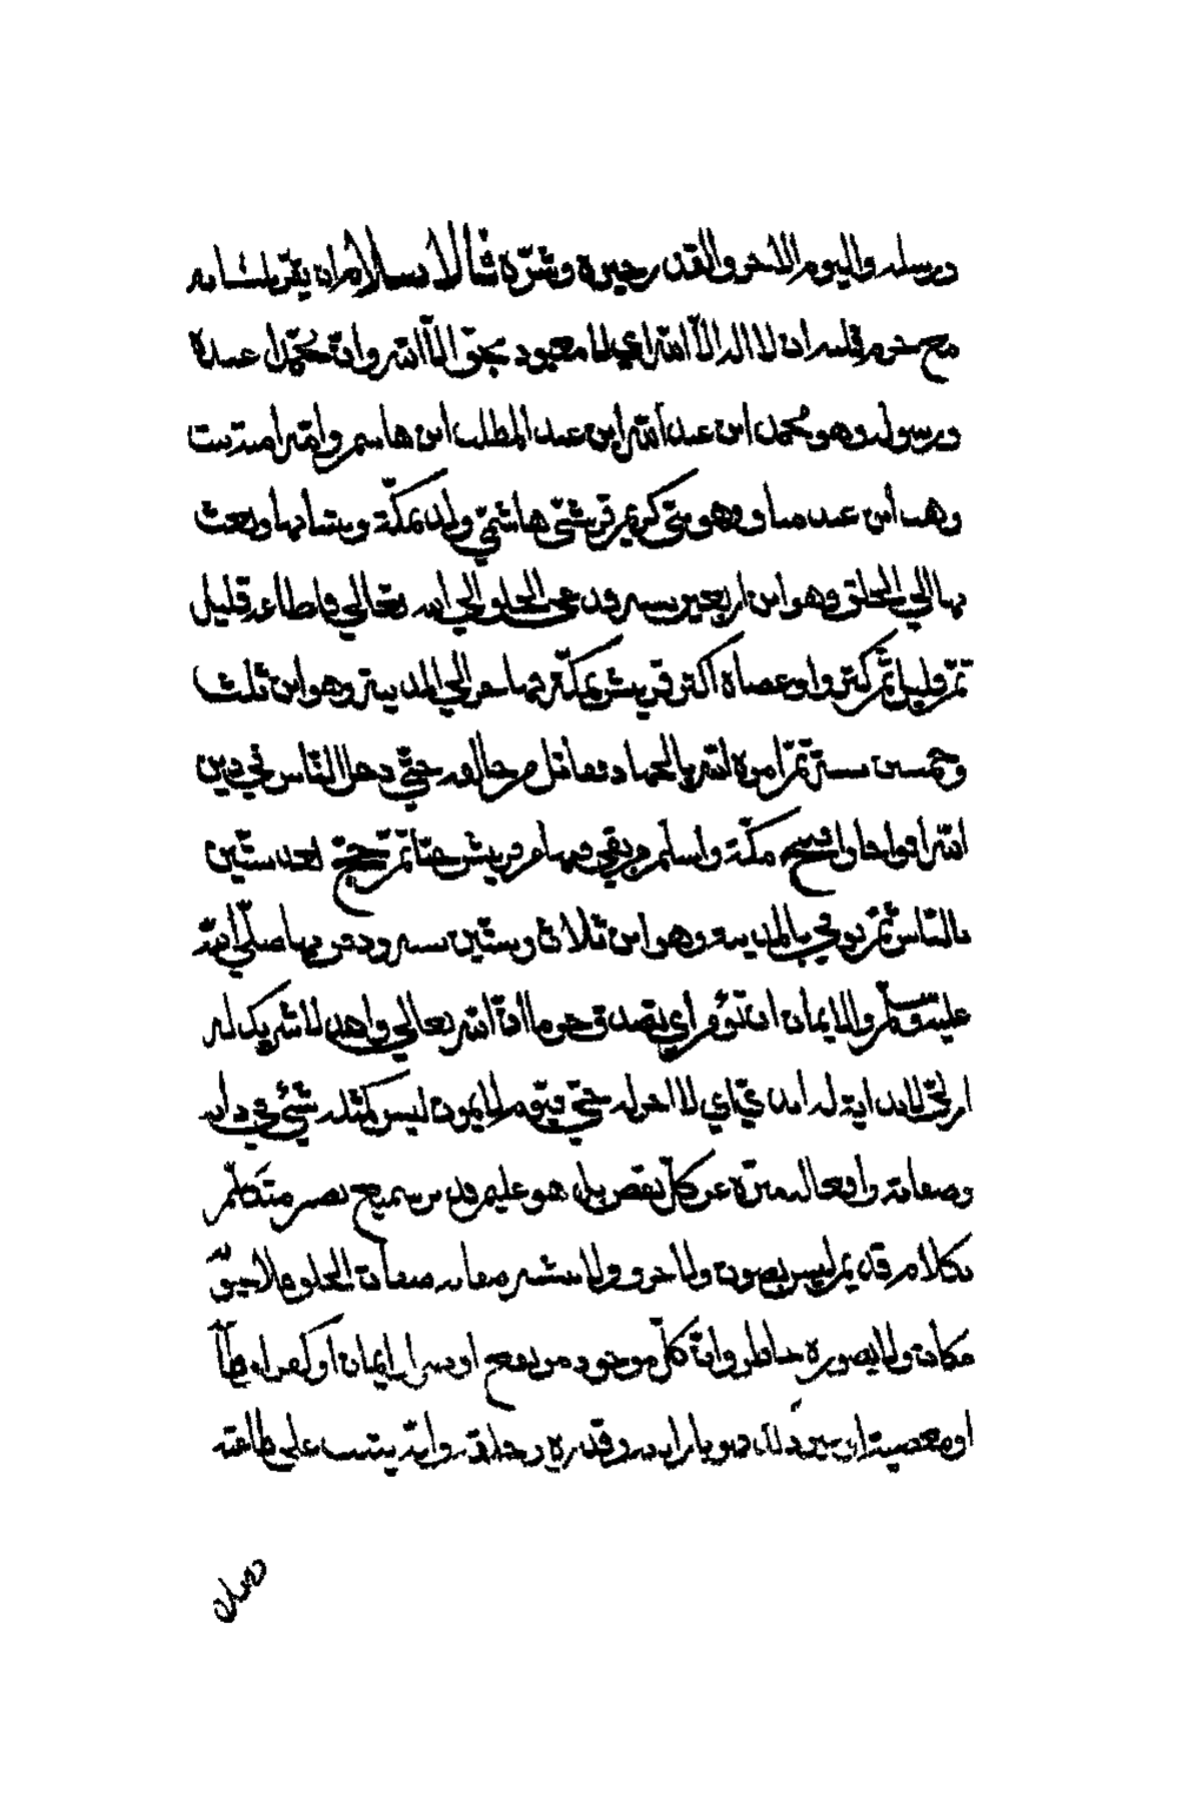 ورسله واليوم الاخر والقدر خيره وشره فالاسلام ان يقر بلسانه
مع جزم قلبه ان لا اله الا الله اي لا معبود بحق الا الله وان محمدا عبده
ورسوله وهو محمد ابن عبد الله ابن عبد المطلب ابن هاشم وامه امنة بنت
وهب ابن عبد مناف وهو نبي كريم قرشي هاشمي ولد بمكة ونشأ بها وبعث
بها الي الخلق وهو ابن اربعين سنة فدعي الخلق الي الله تعالي فاطاعه قليل
ثم قليل ثم كثروا وعصاه اكثر قريش بمكة ثم هاجر الي المدينة وهو ابن ثلث
وخمسين سنة ثم امره الله بالجهاد فقاتل من خالفه حتي دخل الناس في دين
الله افواجا وافتتح مكة واسلم من بقي فيها من قريش ثم حج بعد سنتين
بالناس ثم توفي بالمدينة وهو ابن ثلاث وستين سنة ودفن بها صلي الله
عليه وسلم والايمان ان تؤمن اي تصدق جزما ان الله تعالي واحد لا شريك له
ازلي لا بداية له ابدي اي لا اخر له حي قيوم لا يموت ليس كمثله شئ في ذاته
وصفاته وافعاله منزه عن كل نقص بل هو عليم قدير سميع بصير متكلم
بكلام قديم ليس بصوت ولا حرف ولا تشبه صفاته صفات الخلق ولا يحويه
مكان ولا يصوره خاطر وان كل موجود من نفع او ضر او ايمان او كفر او طاعة
او معصية او غير ذلك هو بارادته وقدرته وخلقه وانه يثيب علي طاعته